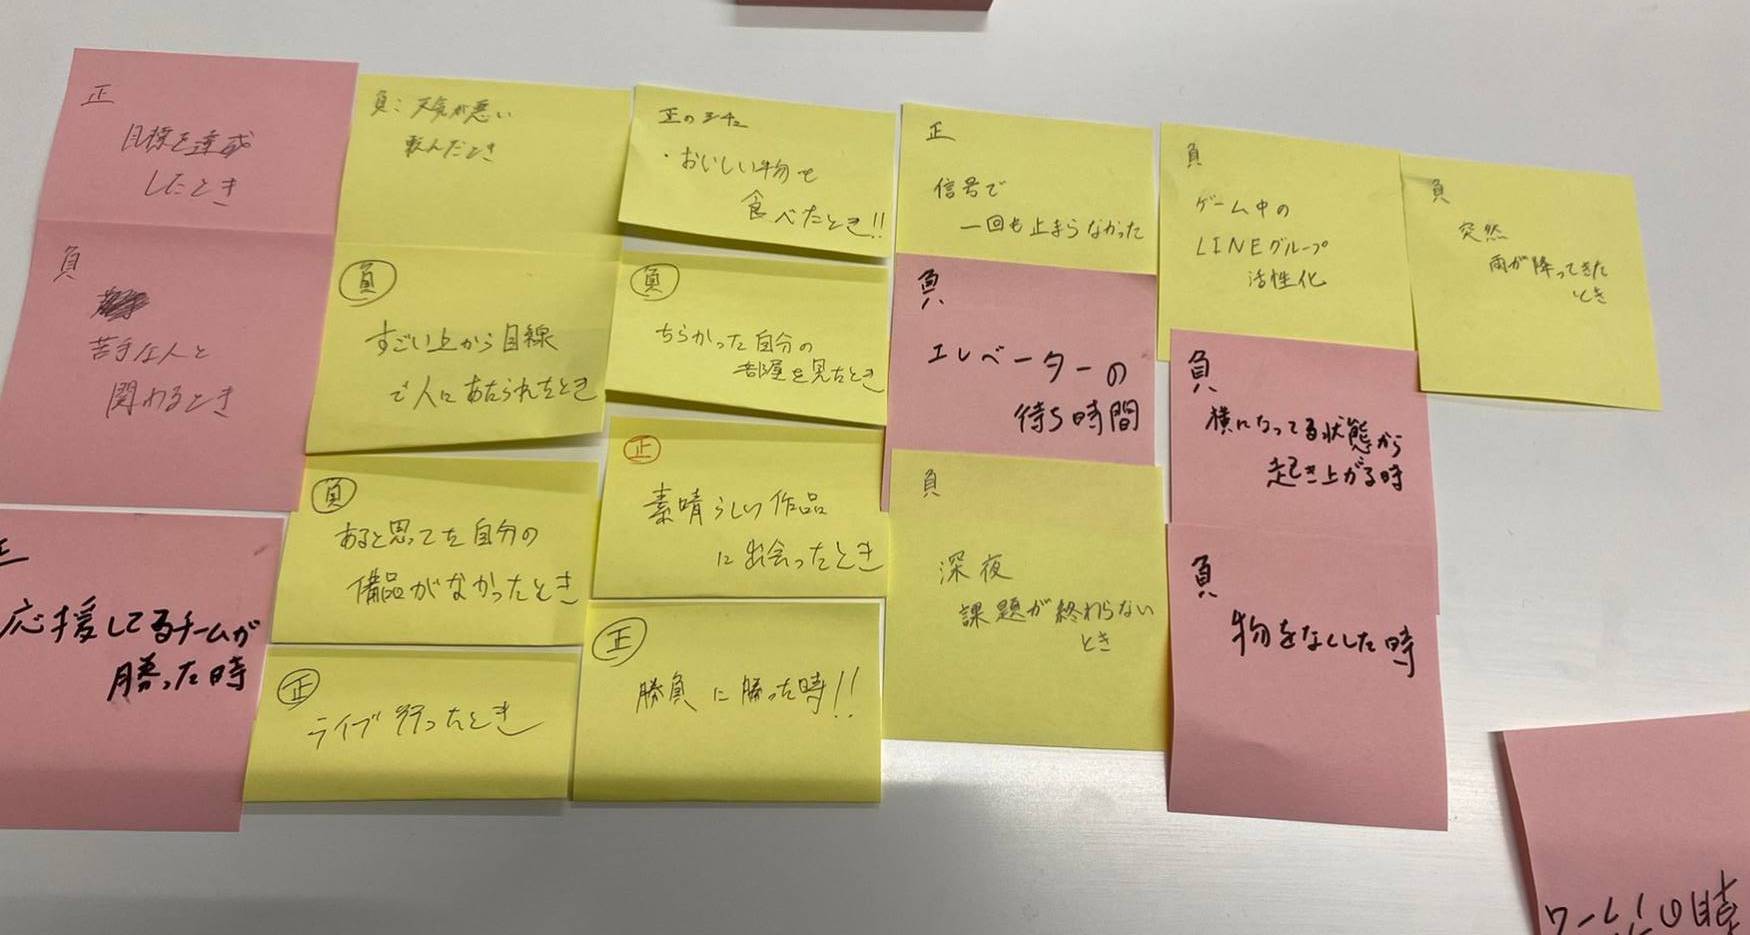 正
目標を達成
したとき
負
苦手な人と
関わるとき
正
応援してるチームが
勝った時
負：天気が悪い
転んだとき
負
すごい上から目線
で人にあたられたとき
負
あると思ってた自分の
備品がなかったとき
正
ライブ行ったとき
正のシチュ
・おいしい物を
食べたとき!!
負
ちらかった自分の
部屋を見たとき
正
素晴らしい作品
に出会ったとき
正
勝負に勝った時!!
正
信号で
一回も止まらなかった
負
エレベーターの
待ち時間
負
深夜
課題が終わらない
とき
負
ゲーム中の
LINEグループ
活性化
負
横になってる状態から
起き上がる時
負
物をなくした時
負
突然
雨が降ってきた
とき